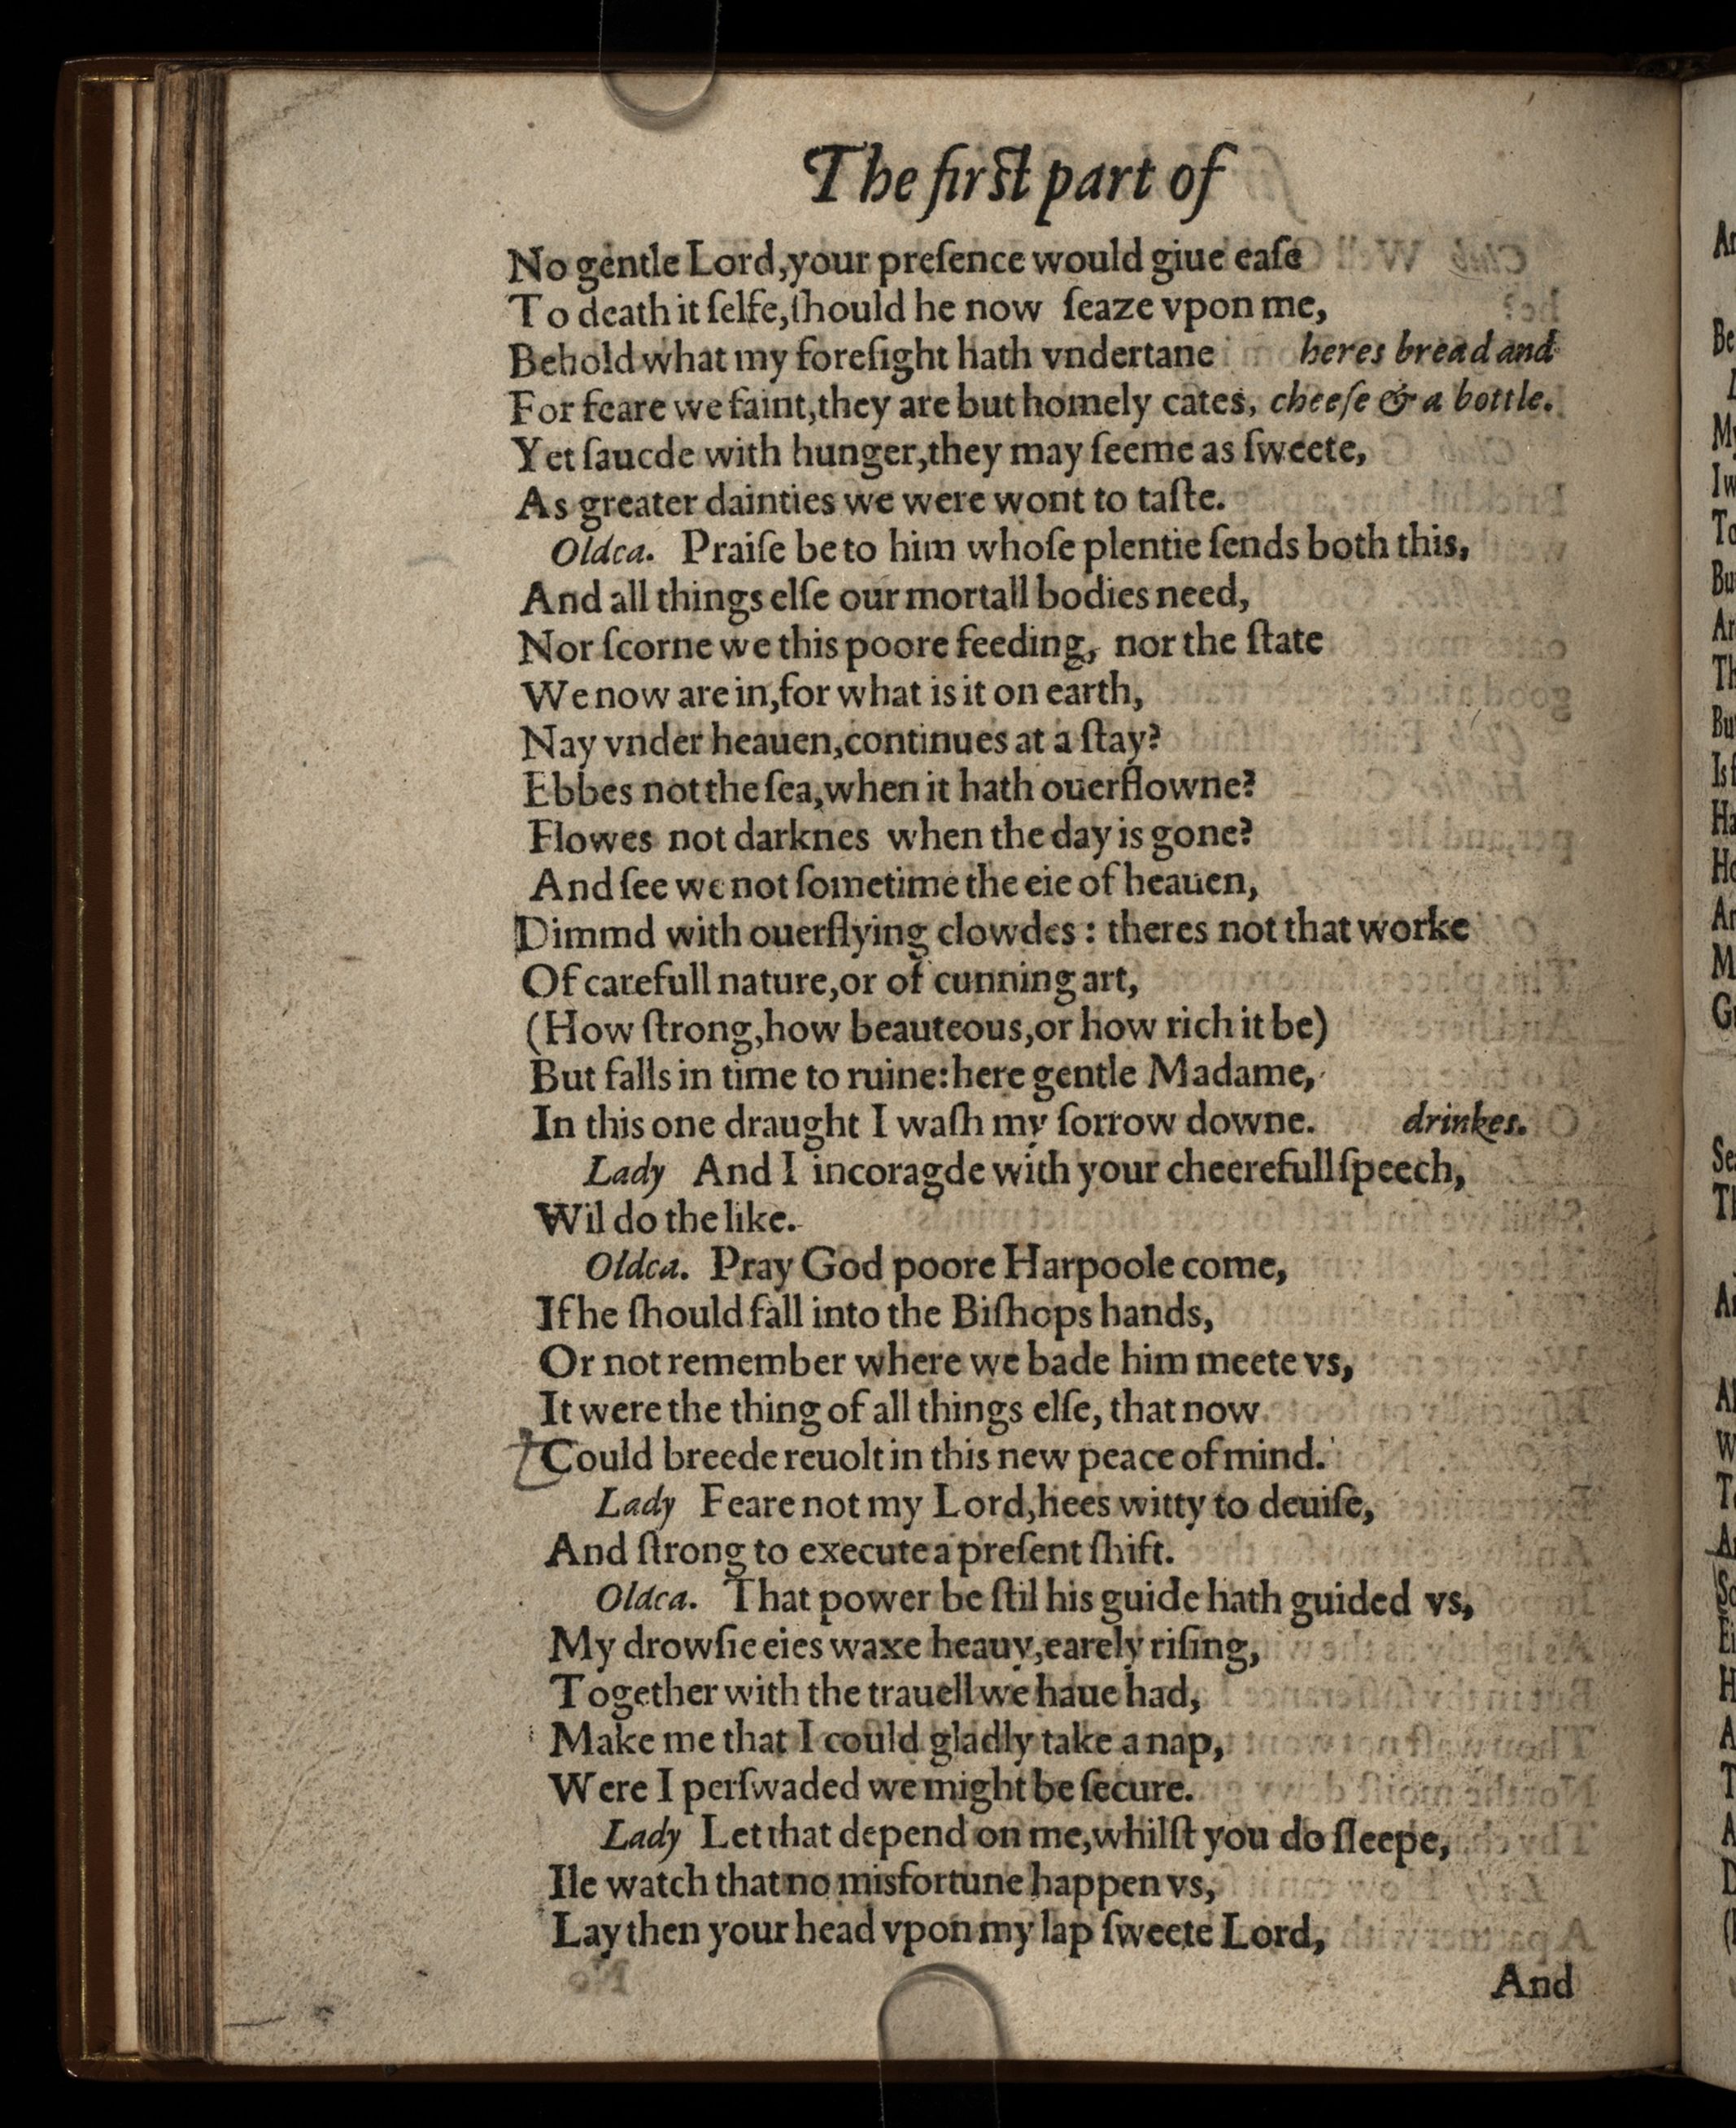 The first part of
No gentle Lord,your preſence would giue eaſe
To death it ſelfe,ſhould he now ſeaze vpon me,
Behold what my foreſight hath vndertane heres bread and
For feare we faint,they are but homely cates, cheeſe & a bottle.
Yet ſaucde with hunger,they may ſeeme as ſweete,
As greater dainties we were wont to taſte.
Oldca. Praiſe be to him whoſe plentie ſends both this,
And all things elſe our mortall bodies need,
Nor ſcorne we this poore feeding, nor the ſtate
We now are in,for what is it on earth,
Nay vnder heauen,continues at a ſtay?
Ebbes not the ſea,when it hath ouerflowne?
Flowes not darknes when the day is gone?
And ſee we not ſometime the eie of heauen,
Dimmd with ouerflying clowdes : theres not that worke
Of carefull nature,or of cunning art,
(How ſtrong,how beauteous,or how rich it be)
But falls in time to ruine:here gentle Madame,
In this one draught I waſh my ſorrow downe. drinkes.
Lady And I incoragde with your cheerefull ſpeech,
Wil do the like.
Oldca. Pray God poore Harpoole come,
If he ſhould fall into the Biſhops hands,
Or not remember where we bade him meete vs,
It were the thing of all things elſe, that now
Could breede reuolt in this new peace of mind.
Lady Feare not my Lord,hees witty to deuiſe,
And ſtrong to execute a preſent ſhift.
Oldca. That power be ſtil his guide hath guided vs,
My drowſie eies waxe heauy,earely riſing,
Together with the trauell we haue had,
Make me that I could gladly take a nap,
Were I perſwaded we might be ſecure.
Lady Let that depend on me,whilſt you do ſleepe,
Ile watch that no misfortune happen vs,
Lay then your head vpon my lap ſweete Lord,
And